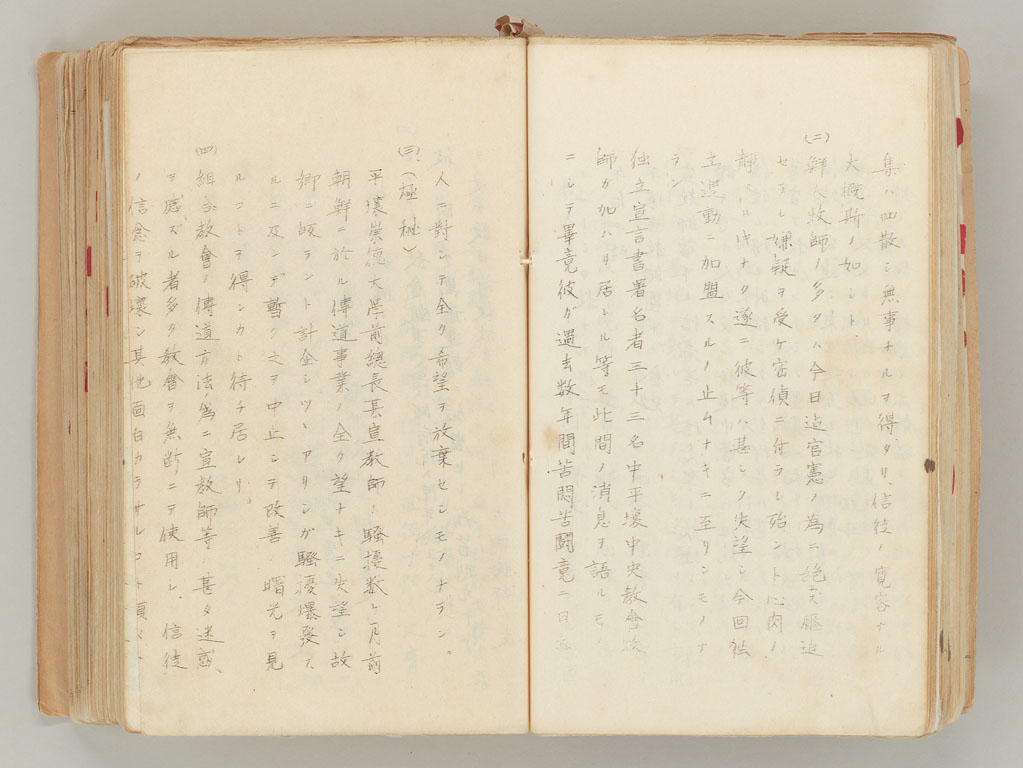 集ハ四散シ無事ナルヲ得タリ、信徒ノ寛容ナル
大概斯ノ如シト
(二)鮮人牧師ノ多クハ今日迄官憲ノ為ニ絶大壓迫
セラレ嫌疑ヲ受ケ密偵ニ付ラレ殆ント心肉ノ
静マル時ナク遂ニ彼等ハ甚シク失望シ今回独
立運動ニ加盟スルノ止ムナキニ至リシモノナ
ラン
独立宣言書署名者三十三名中平壌中央教會牧
師ガ加ハリ居レル等モ此間ノ消息ヲ語ルモノ
ニシテ畢竟彼ガ過去数年間苦悶苦闘竟ニ日本
人ニ對シテ全ク希望ヲ放棄セシモノナラン。
(三)(極秘)
平壌崇徳大学前總長某宣教師ハ騒擾数ヶ月前
朝鮮ニ於ル傳道事業ノ全ク望ナキニ失望シ故
郷ニ皈ラント計企シツヽアリシガ騒擾爆發ス
ルニ及ンデ暫ク之ヲ中止シテ改善ノ曙光ヲ見
ルコトヲ得ンカト待チ居レリ。
(四)組合教會ノ傳道方法ノ為ニ宣教師等ハ甚タ迷惑
ヲ感ズル者多ク教會ヲ無断ニテ使用シ、信徒
ノ信念ヲ破壊シ其他面白カラサルコト頗ル